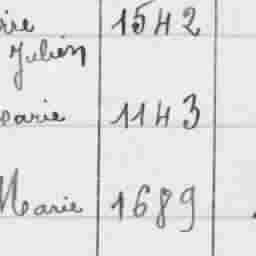 rie 1542
Julien
earie 1143
Marie 1689